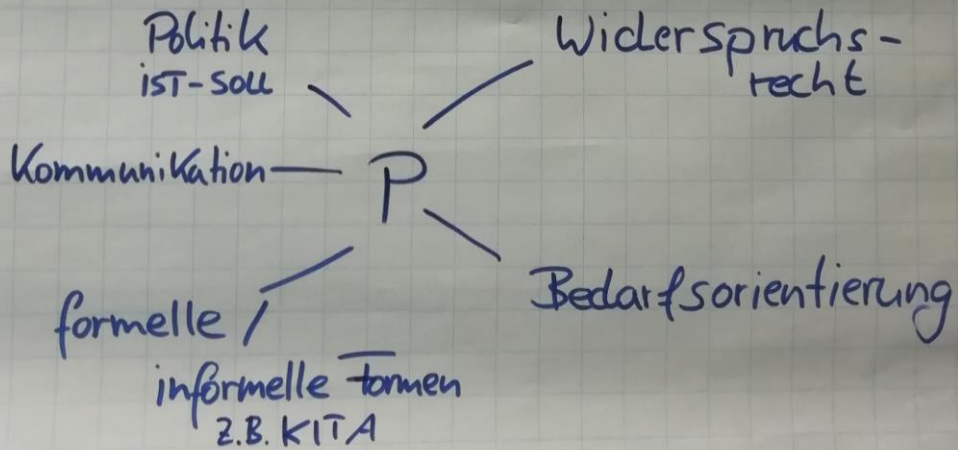 Politik
IST-SOLL
Widerspruchs-
recht
Kommunikation
P
Bedarfsorientierung
formelle /
informelle Formen
Z.B. KITA